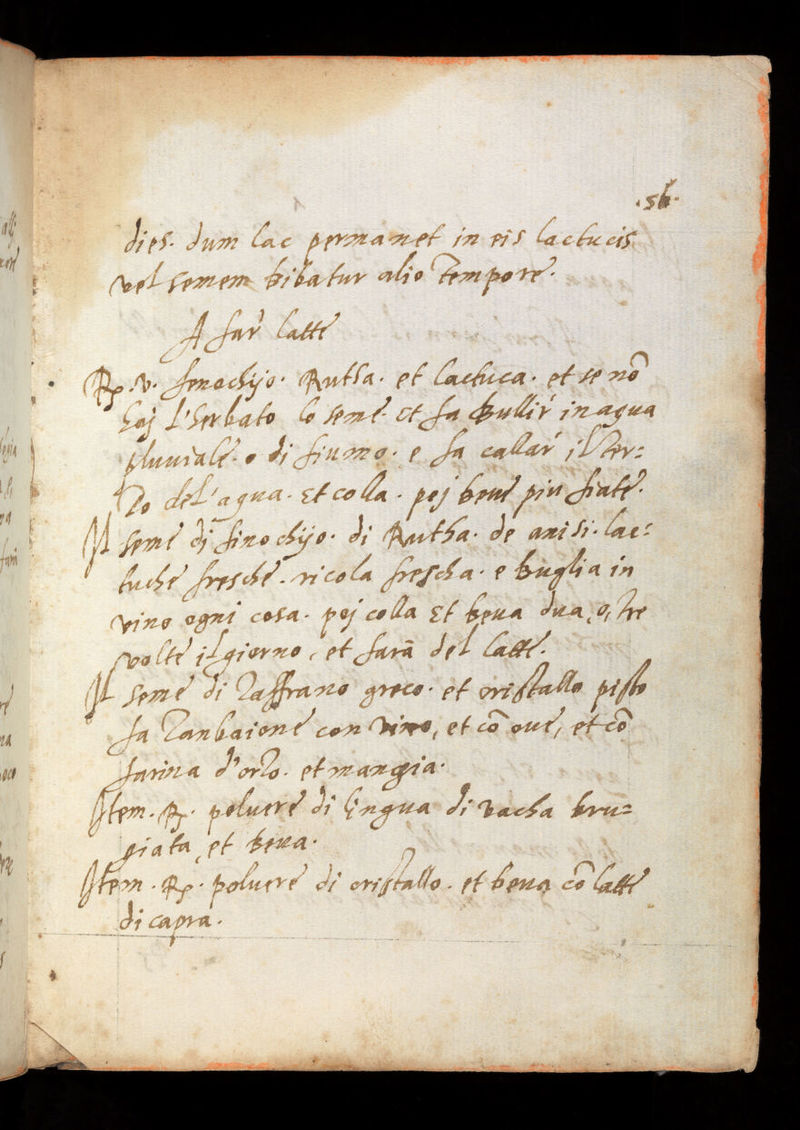 .56.
dies. dum lac permanet in eis lactucis
vel semem bibatur alio tempore.
A far latte
Rp. v. fenochijo. Rutha. et lactuca. et se nõ
haj l'herbato lo seme. Et fa bullir in agua
pluviale. o di fiumo. e fa callar il ter=
zo del'agua. Et colla. poj beve piu fiate.
Il seme di finochijo. di Rutha. de anisi. lac=
tuche fresche. ricola frescha. e buglia in
vino ogni cosa. poj colla Et beva dua, o, tre
volte il giorno, et farã del latte.
Il seme di zaffrano greco. et cristallo pisto
fa zanbaione con vino, et cõ ove, et cõ
farina d'orzo. et mangia.
Item. Rp. polvere di lingua di vacha bru=
giata, et beva.
Item. Rp. polvere di cristallo. et beva cõ latte
di capra.